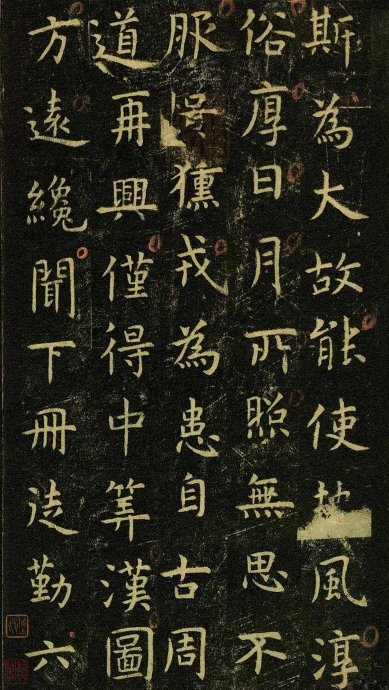 斯為大故能使地風淳
俗厚日月所照無思不
服獯戎為患自古周
道再興僅得中筭漢圖
方遠纔聞下冊徒勤六